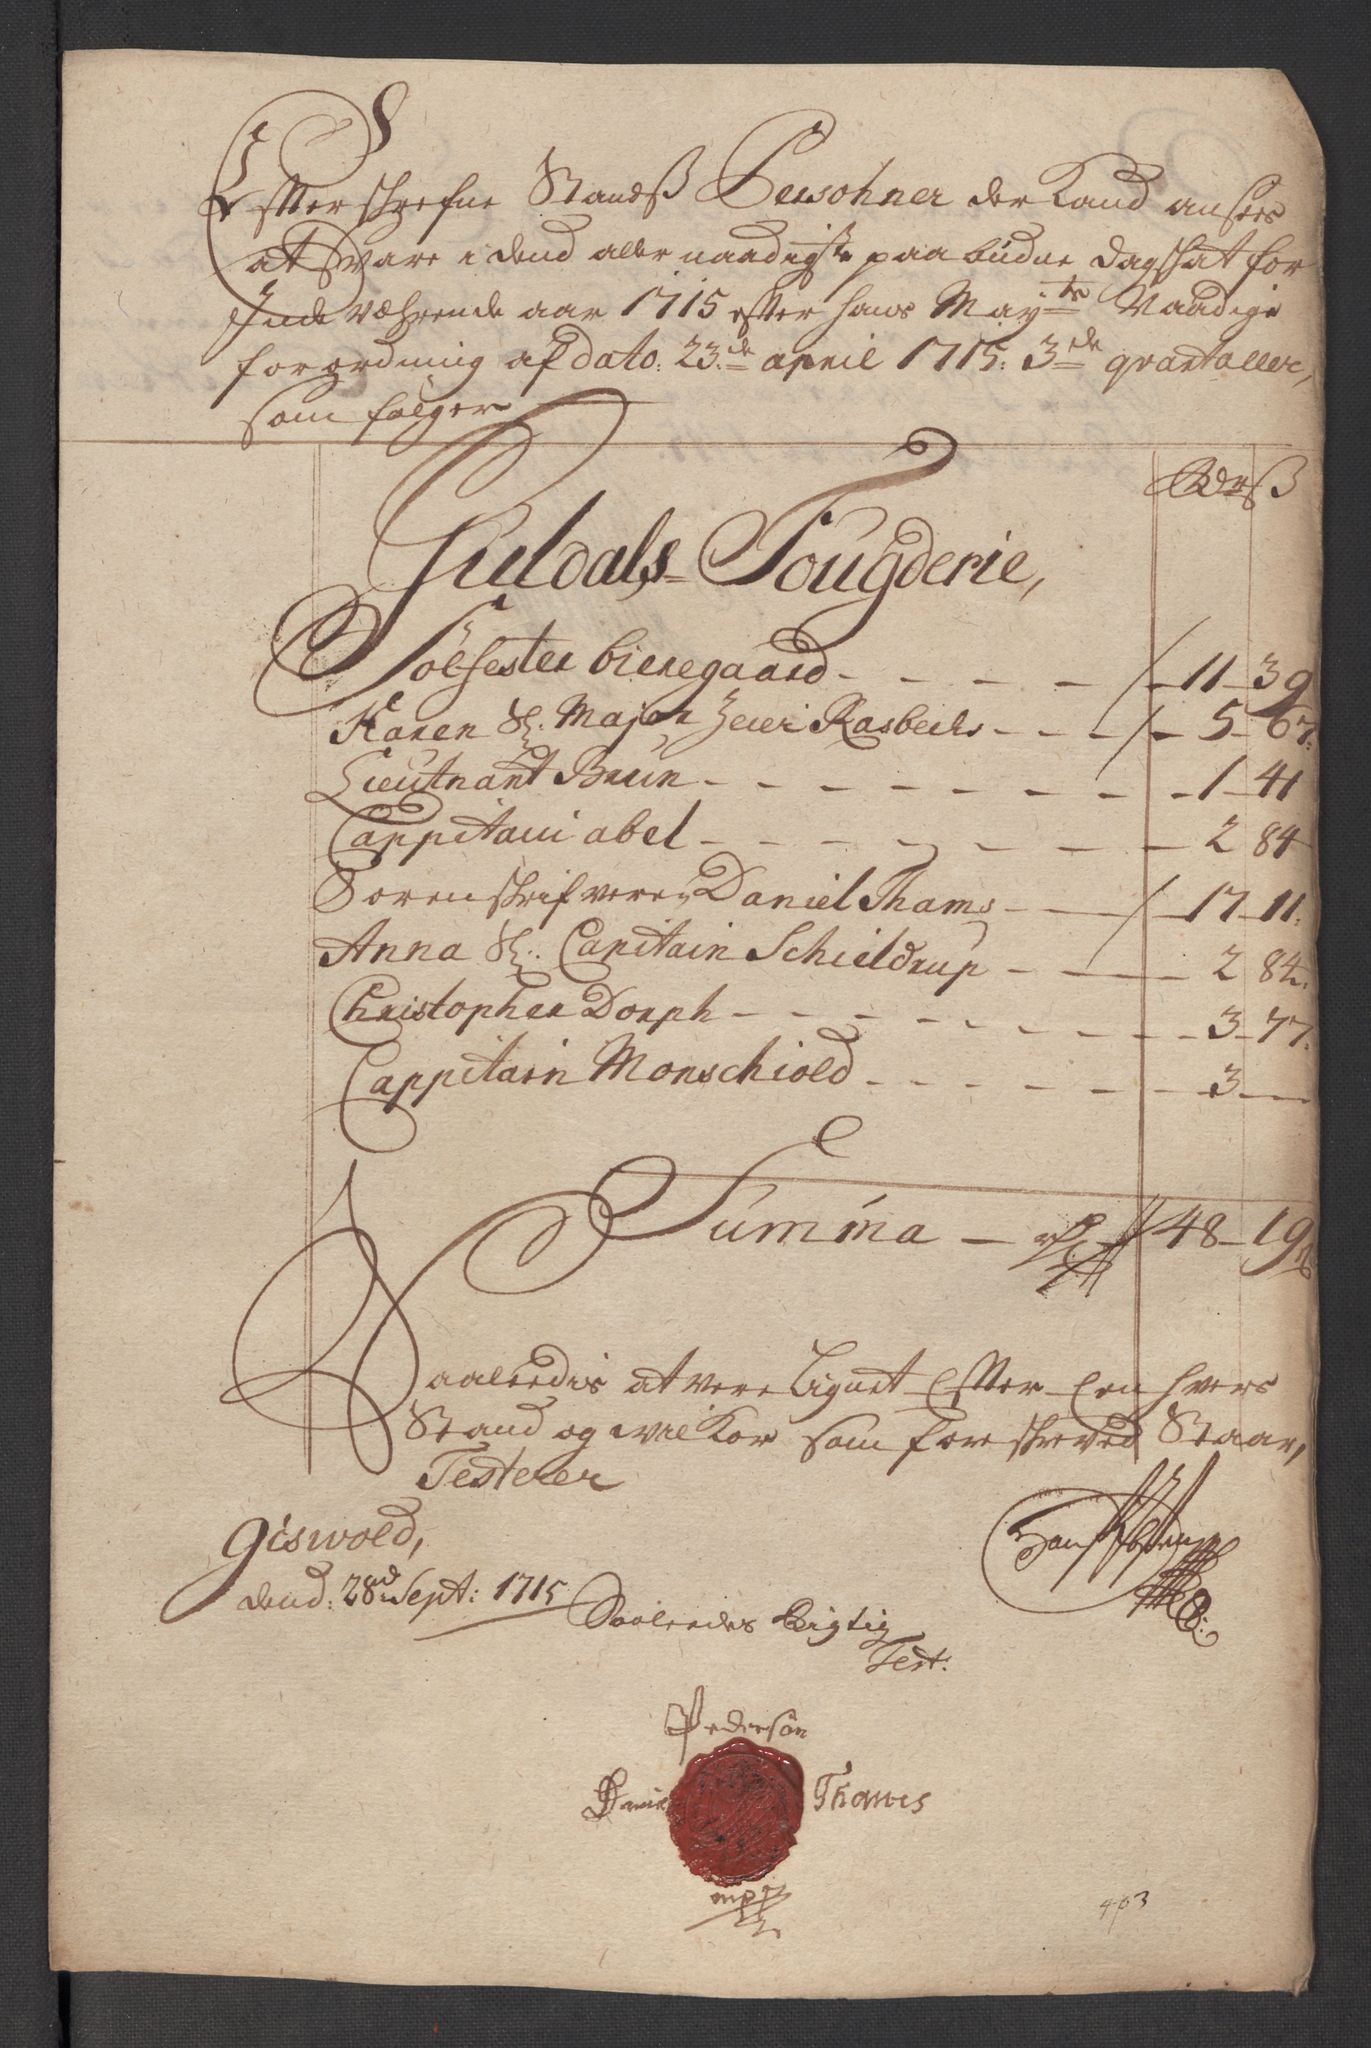 Efter schrefne Standß Persohner der Kand ansees
at svare i dend aller naadigste paa büdne Dagshat for
Inde Wæhrende aar 1715 efter hans May:ts Naadige
forordning af dato: 23:de april 1715: 3:de qvartaller,
som følger
Rdr ß
Guldals= Fougderie,
Tolfester bieregaard - - - - - 11 - 39
Karen Sl. Major Zeier Rasbechs - - - 5 - 67:
Lieutnant Brun - - - - - - - - 1 - 41
Cappitain abel - - - - - - - 2 84
Sorenschrifveren Daniel Thams - - 17 - 11:
Anna Sl: Capitain Schieldrup - - 2 84:
Christopher Dorph - - - - - - - 3 - 77:
Cappitain Monschiold - - - - - 3 -
Summa - 48 - 19
Saaleedis at vere Lignet Efter Een hvers
Stand og wilkor som foreskreved Staar,
Testerer
Giswold,
dend: 28d Sept: 1715
Saaleedes Rigtig
Test:
Pedersøn
Daniel Thames
mp
403